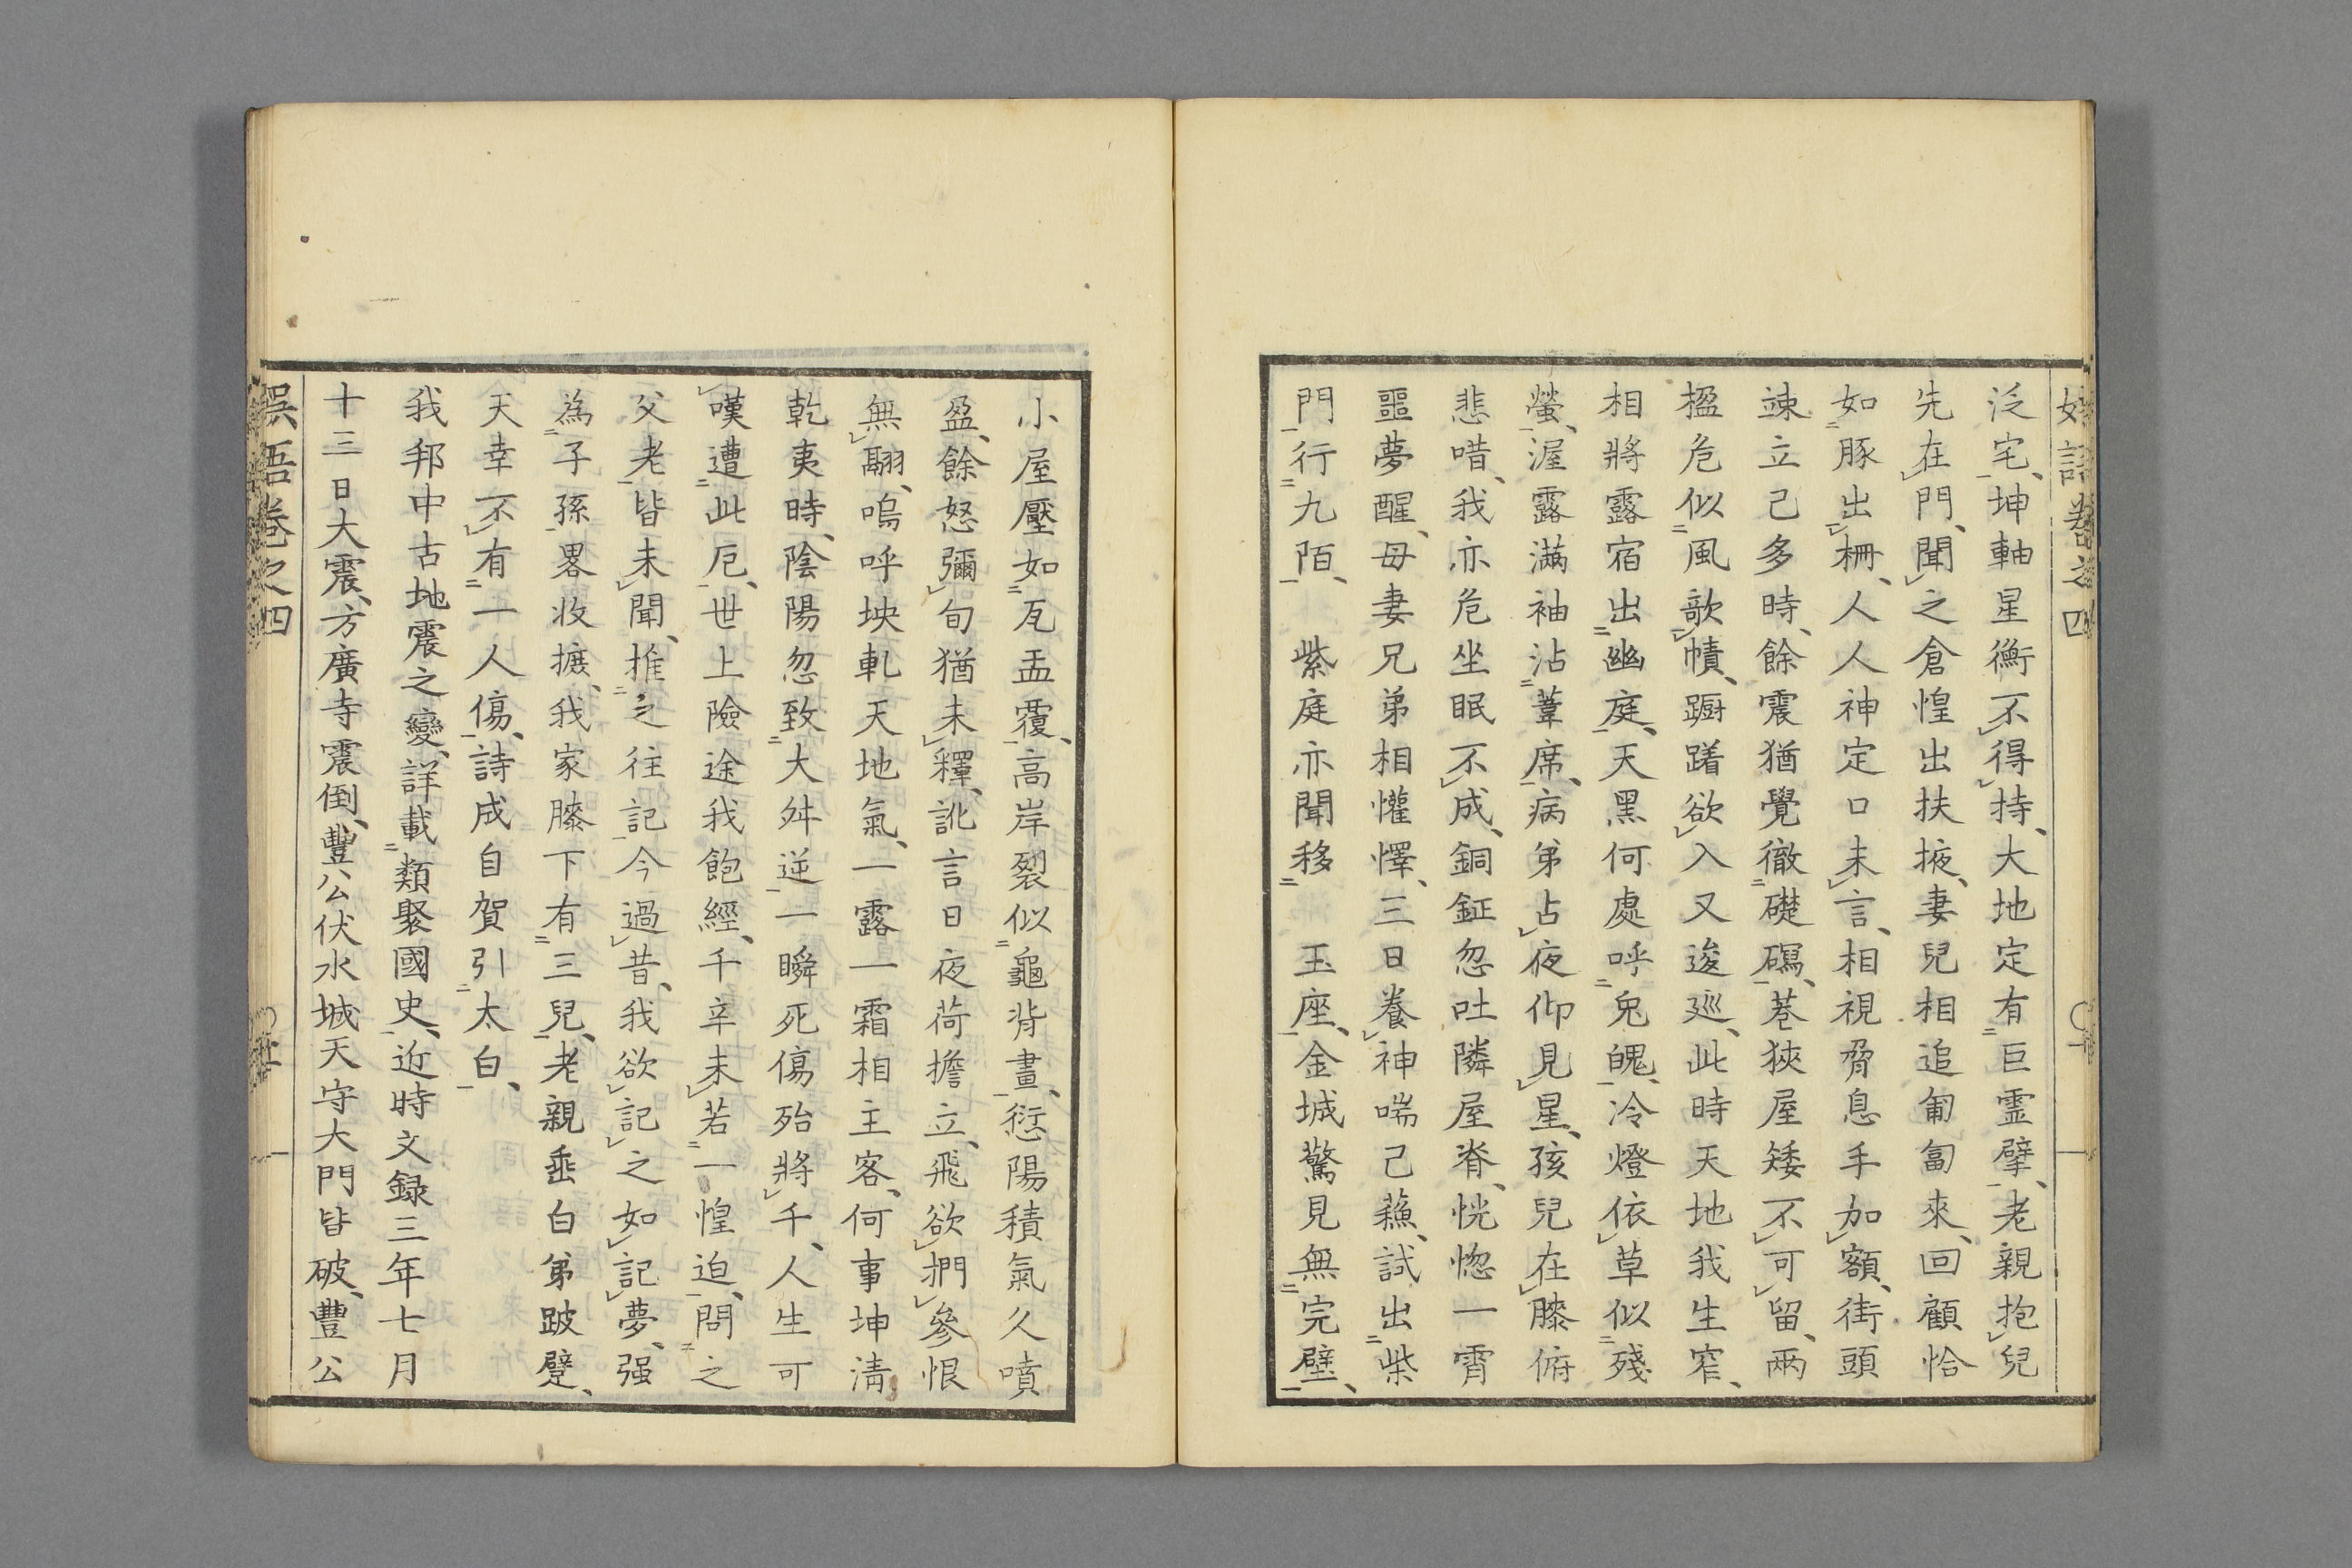 泛宅、坤軸星衡不得持、大地定有巨霊擘、老親抱兒
先在門、聞之倉惶出扶掖、妻兒相追匍匐來、回顧恰
如豚出柵、人人神定口未言、相視脅息手加額、街頭
竦立已多時、餘震猶覺徹礎磶、巷狹屋矮不可留、兩
楹危似風欹幘、蹰躇欲入又逡巡、此時天地我生窄、
相將露宿出幽庭、天黑何處呼兔魄、冷燈依草似殘
螢、渥露滿袖沾葦席、病弟占夜仰見星、孩兒在膝俯
悲唶、我亦危坐眠不成、銅鉦忽吐隣屋脊、恍惚一霄
噩夢醒、母妻兄弟相懽懌、三日養神喘已蘓、試出柴
門行九陌、 紫庭亦聞移 玉座、金城驚見無完壁、
小屋壓如瓦盂覆、高岸裂似龜背畫、愆陽積氣久噴
盈、餘怒彌旬猶未釋、訛言日夜荷擔立、飛欲捫參恨
無翮、嗚呼坱軋天地氣、一露一霜相主客、何事坤淸
乾夷時、陰陽忽致大舛逆、一瞬死傷殆將千、人生可
嘆遭此厄、世上險途我飽經、千辛未若一惶迫、問之
父老皆未聞、推之往記今過昔、我欲記之如記夢、强
為子孫畧收摭、我家膝下有三兒、老親垂白弟跛躄、
天幸不有一人傷、詩成自賀引太白、
我邦中古地震之變、詳載類聚國史、近時文録三年七月
十三日大震、方廣寺震倒、豐公伏水城天守大門皆破、豐公
娯語卷之四